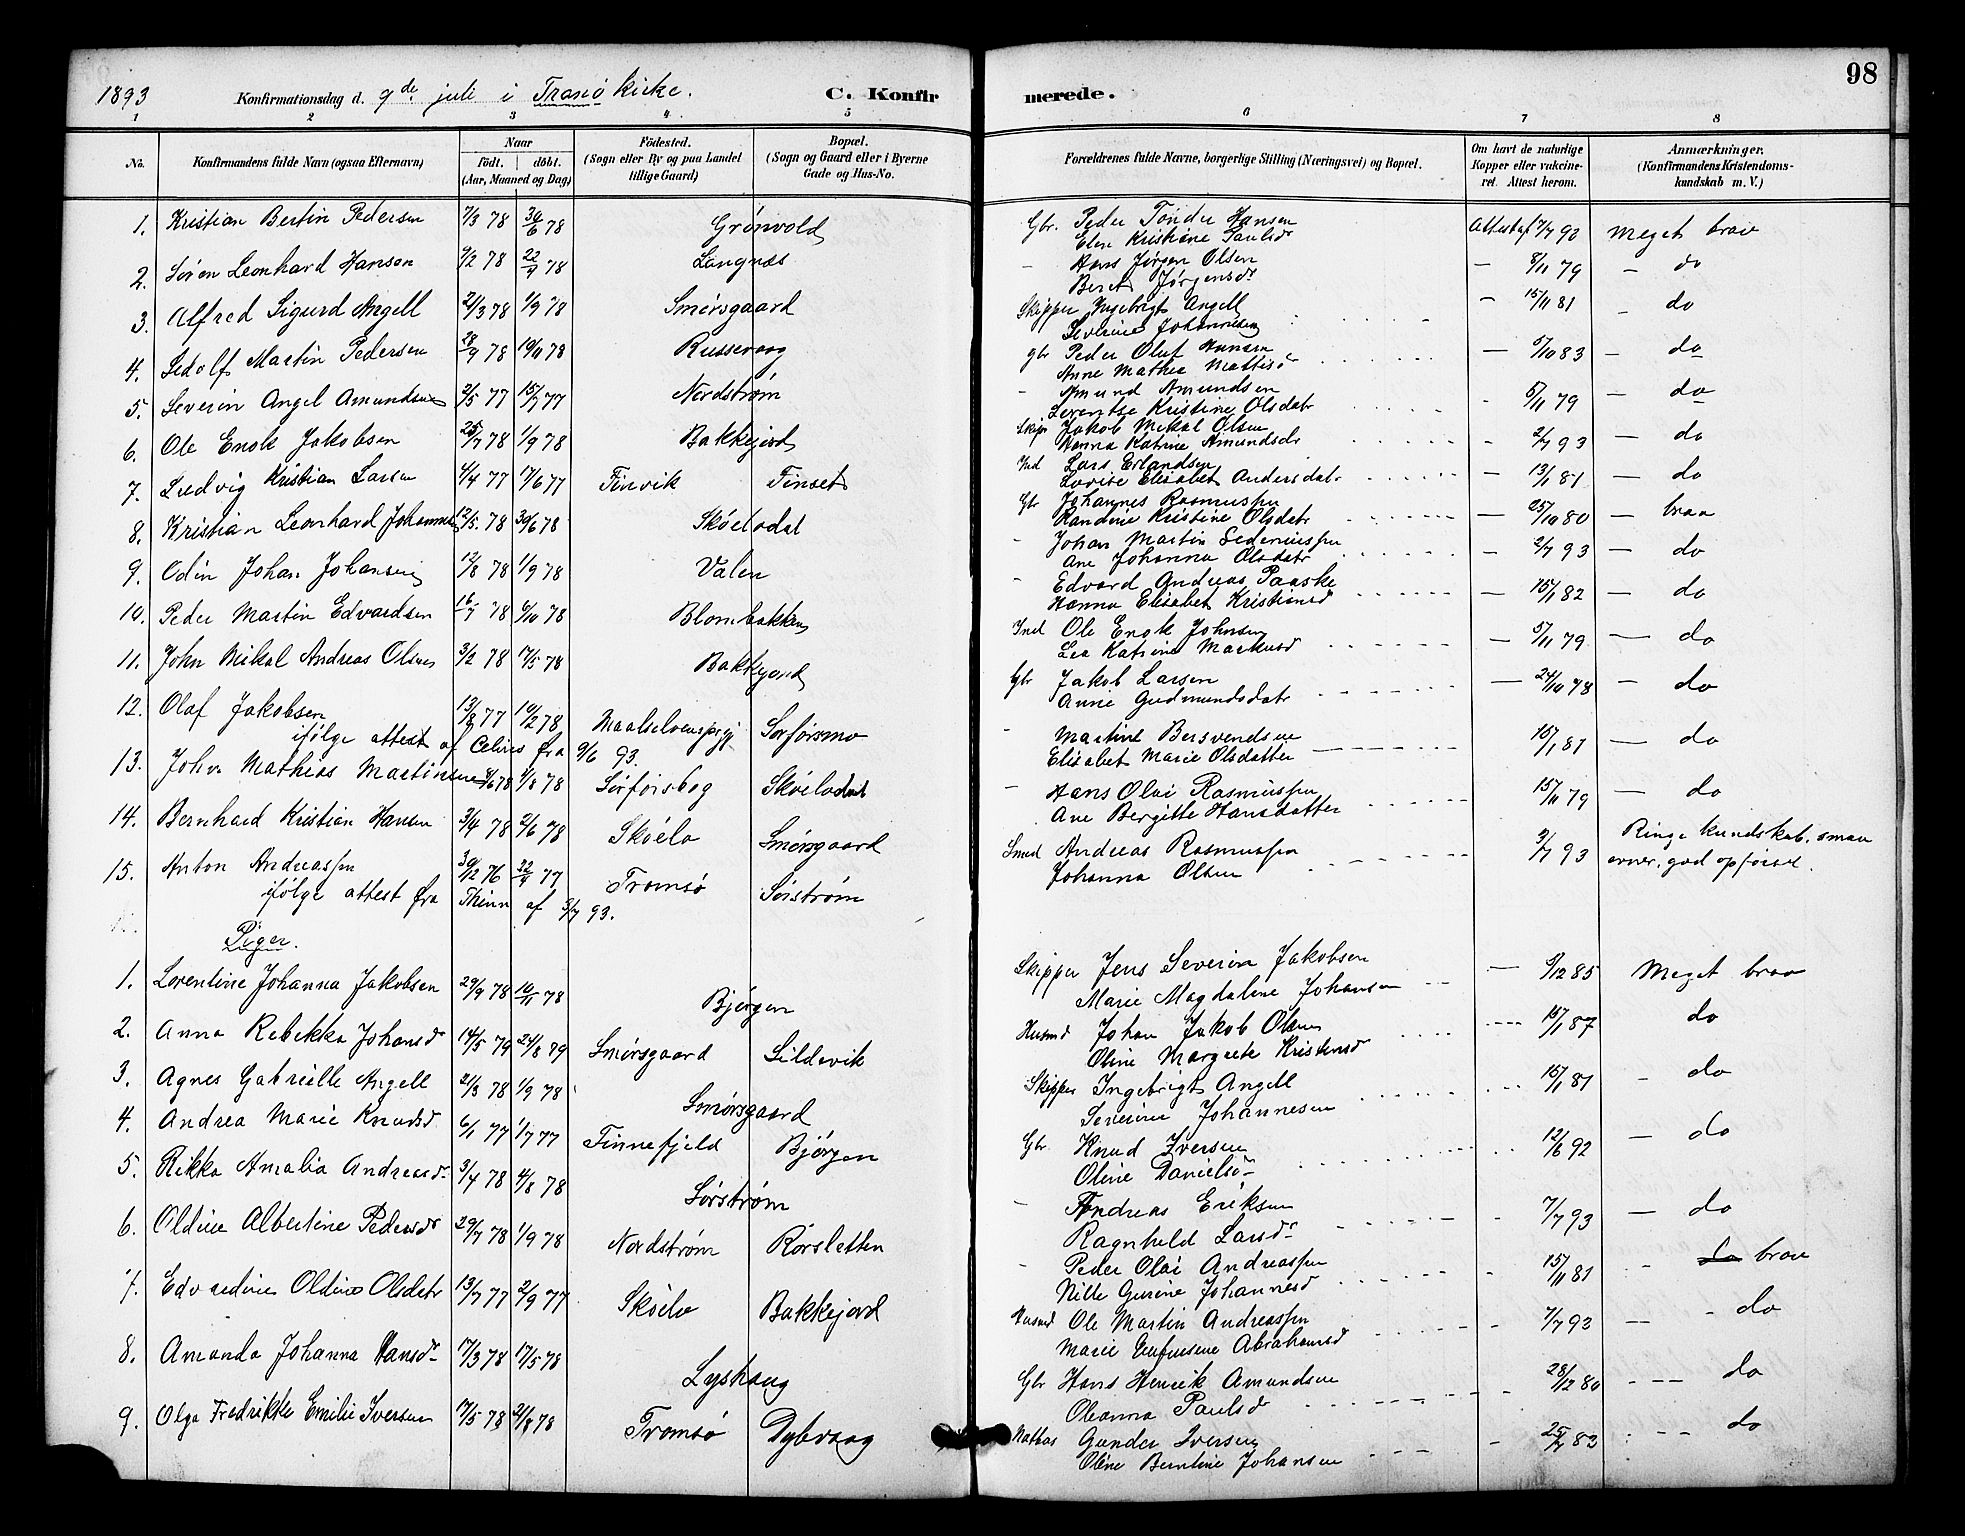 98
1893 Konfirmationsdag d. 9de juli i Tranø kirke. C. Konfirmerede.
1 2 3 4 5 6 7 8
No.
Konfirmandens fulde Navn (ogsaa Efternavn)
Naar
født. | døbt.
(Aar, Maaned og Dag)
Fødested.
(Sogn eller By og paa Landet
tillige Gaard)
Bopæl.
(Sogn og Gaard eller i Byerne
Gade og Hus-No.
Forældrenes fulde Navne, borgerlige Stilling (Næringsvei) og Bopæl.
Om havt de naturlige
Kopper eller vakcine-
ret. Attest herom.
Anmærkninger.
(Konfirmandens Kristendoms-
kundskab m. V.)
1. Kristian Bertin Pedersen 7/3 78 30/6 78 Grønvold Gbr. Peder Tønder Hansen
Elen Kristiane Paulsdr Attest af 7/7 92 Meget brav
2. Søren Leonhard Hansen 9/2 78 22/9 78 Langnæs - Hans Jørgen Olsen
Beret Jørgensdr — 8/11 79 - do
3. Alfred Sigurd Angell 21/3 78 1/9 78 Smørsgaard Skipper Ingebrigt Angell
Severine Johannesen - 15/11 81 - do
4. Sedolf Martin Pedersen 28/9 78 10/11 78 Russevaag gbr Peder Oluf Hansen
Anne Mathea Mattisdr — 5/10 83 - do
5. Severin Angel Amundsen 2/5 77 15/7 77 Nordstrøm - Amund Amundsen
Lerentse Kristine Olsdatr - 5/11 79 - do
6. Ole Enok Jakobsen 25/7 78 1/9 78 Bakkejord Skipr Jakob Mikal Olsen
Hanna Katrine Amundsdr - 2/7 93 - do
7. Ludvig Kristian Larsen 4/4 77 17/6 77 Finvik Finset Ind Lars Erlandsen
Lovise Elisabet Andersdatr - 13/1 81 - do
8. Kristian Leonhard Johannes 12/5 78 30/6 78 Skøelvdal Gbr Johannes Rasmussen
Randine Kristine Olsdatr — 25/10 80 - brav
9. Odin Johan Johansen 12/8 78 1/9 78 Valen - Johan Martin Sedeniussen
Ane Johanna Olsdatr - 2/7 93 — do
10. Peder Martin Edvardsen 16/7 78 6/10 78 Blombakken - Edvard Andreas Paaske
Hanna Elisabet Kristiansd — 15/1 82 — do
11. John Mikal Andreas Olsen 3/2 78 17/5 78 Bakkejord Ind Ole Enok Johnsen
Lea Katrine Markusd — 5/11 79 — do
12. Olaf Jakobsen 13/8 77 10/2 78 Maalselvenspgj Sørforsmo Gbr Jakob Larsen
Anne Gudmundsdatr — 24/10 78 - do
ifølge attest af fra 9/6 93.
13. John Mathias Martinsen 9/6 78 4/8 78 Sørforsbog Skøelvdal - Martine Bersvendsen
Elisabet Marie Olsdatter 15/1 81 — do
14. Bernhard Kristian Hansen 3/4 78 2/6 78 Skøelv Smørsgaard - Hans Olai Rasmussen
Ane Bergitte Hansdatter 15/11 79 — do
15. Anton Andreassen 30/12 76 22/4 77 Tromsø Sørstrøm Smed Andreas Rasmussen
Johanna Olsen 3/7 93 Ringe kundskab, smaa
evner, god opførsel.
ifølge attest fra Thinn af 3/7 93.
Piger.
1. Lorentine Johanna Jakobsen 29/9 78 10/11 78 Bjørgen Skipper Jens Severin Jakobsen
Marie Magdalene Johansen — 9/12 85 Meget brav
2. Anna Rebekka Johansd 14/5 79 24/8 79 Smørsgaard Sildevik Husmd Johan Jakob Olsen
Oline Margrete Kristensd 15/1 87 do
3. Agnes Gabrielle Angell 21/3 78 1/9 78 Smørsgaard Skipper Ingebrigt Angell
Severine Johannesen 15/1 81 - do
4. Andrea Marie Knudsd 6/1 77 1/7 77 Finnefjeld Bjørgen Gbr Knud Iversen
Oline Danielsdr 12/6 92 - do
5. Rikka Amalia Andreasdr 3/4 78 4/8 78 Sørstrøm - Andreas Eriksen
Ragnheld Larsdr - 7/7 93 — do
6. Oldine Albertine Pedersdr 29/7 78 1/9 78 Nordstrøm Rørsletten - Peder Olai Andreassen
Nille Gurine Johannesd 15/11 81 do brav
7. Edvardine Oldine Olsdatr 13/7 77 2/9 77 Skøelv Bakkejord Husmd Ole Martin Andreassen
Marie Abrahamsd - 7/7 92 - do
8. Amanda Johanna Hansdr 17/3 78 17/5 78 Lyshaug Gbr Hans Henrik Amundsen
Oleanna Paulsd - 28/12 80 do
9. Olga Fredrikke Emilie Iversen 17/5 78 21/8 78 Tromsø Dybvaag Gunder Iversen
Oline Berntine Johansen - 25/7 83 do